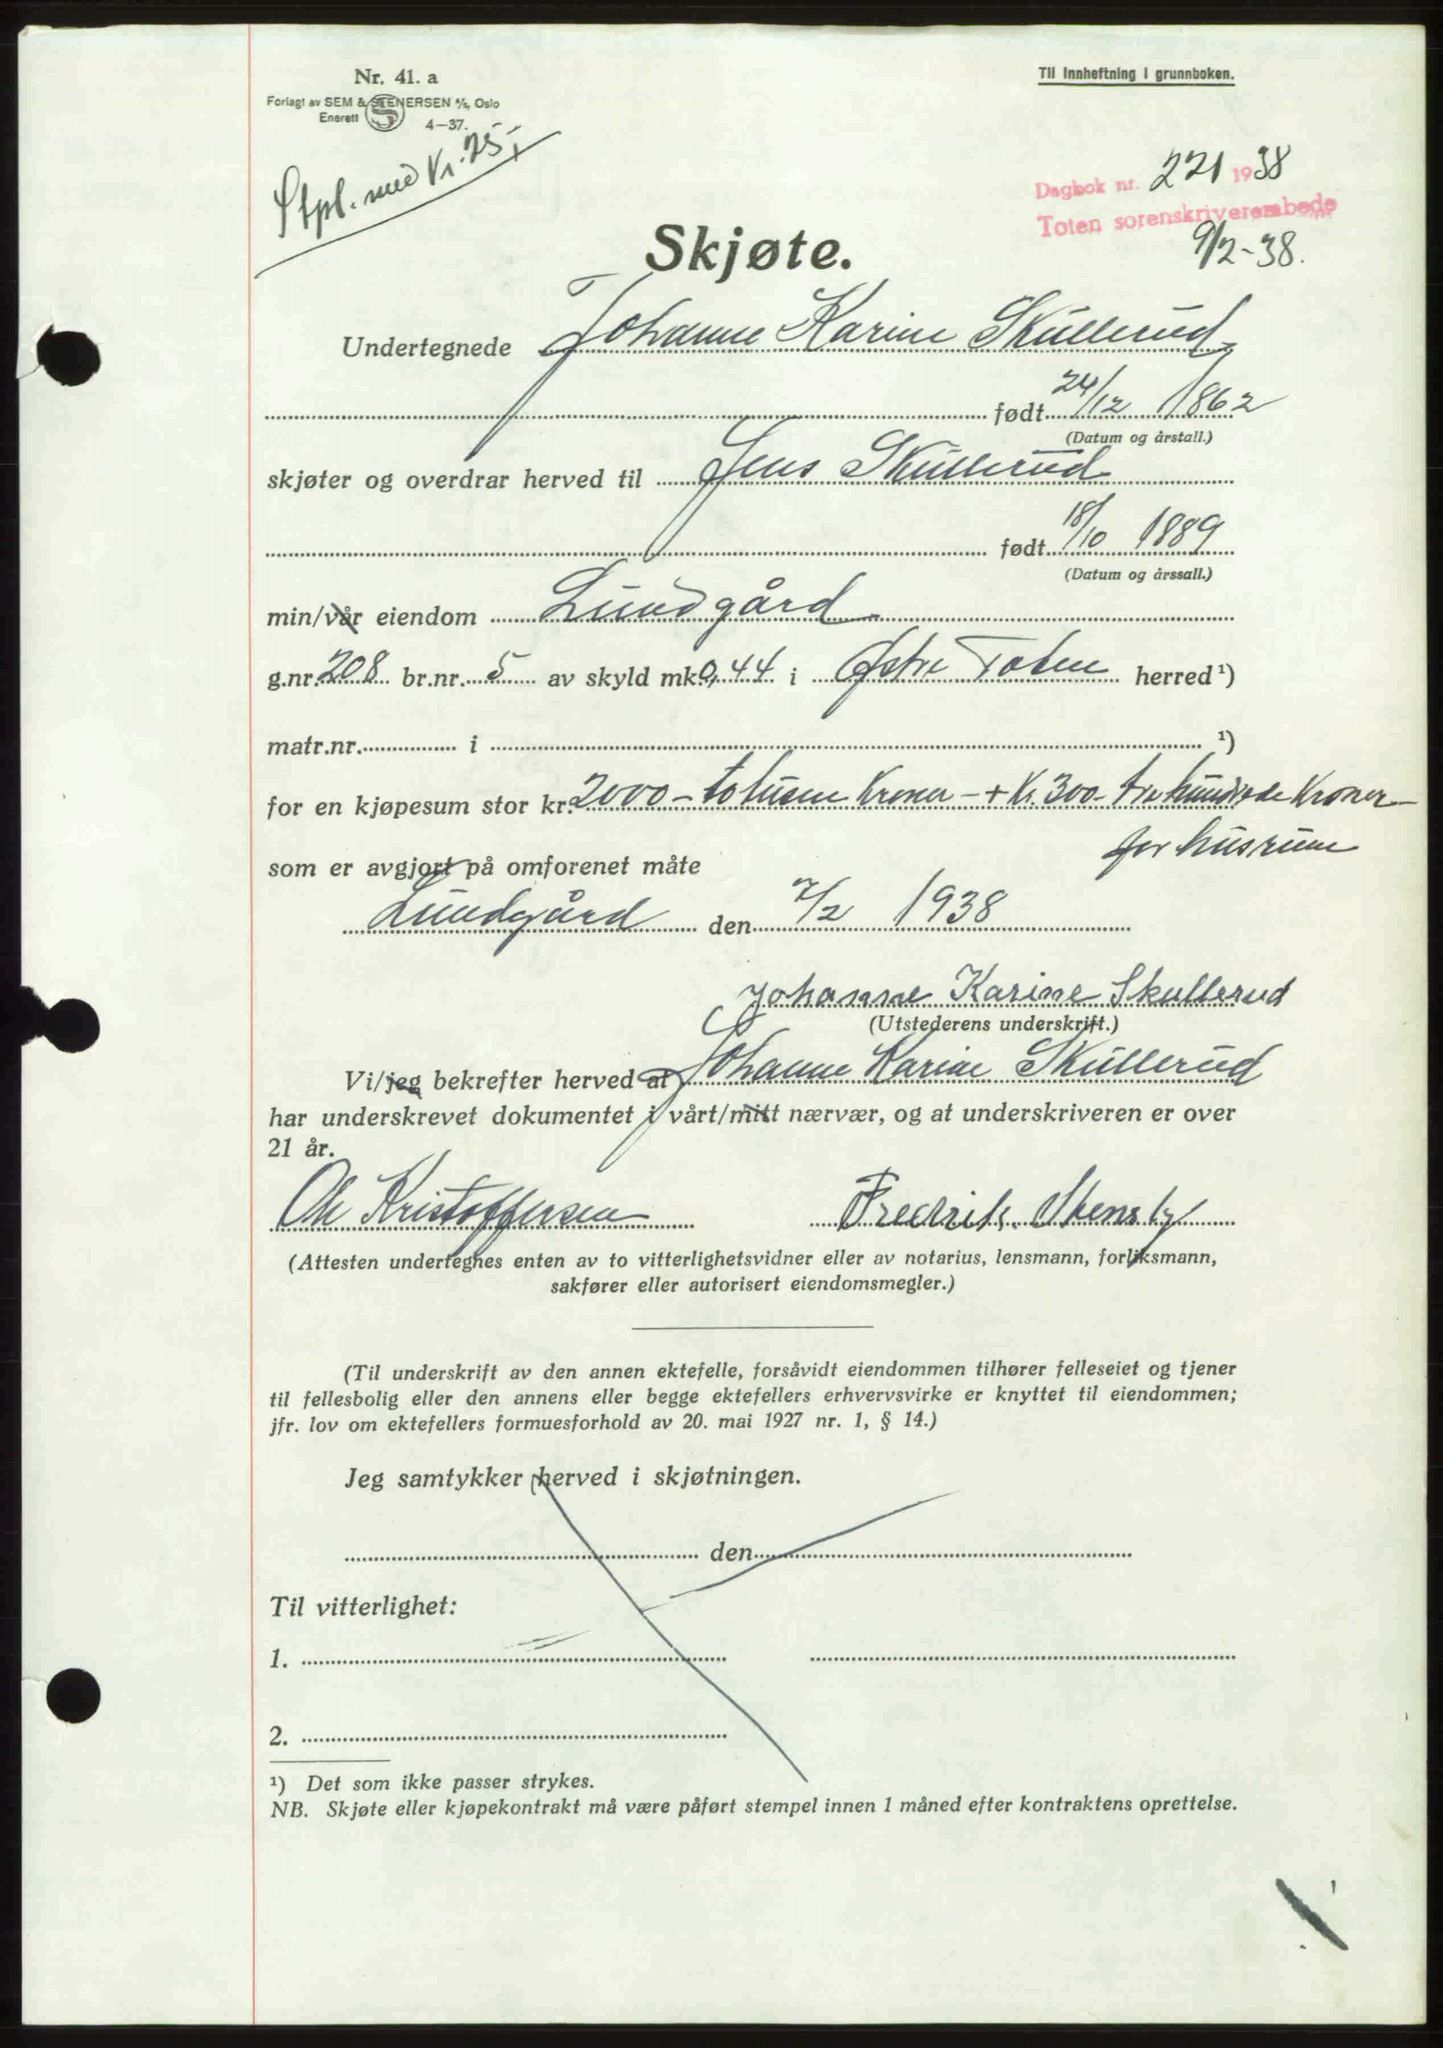 Nr. 41. a
Forlagt av SEM & STENERSEN A/S, Oslo
Enerett
4—37.
Stpl. med Kr. 25,-
Til innheftning i grunnboken.
Dagbok nr. 221 1938
Toten sorenskriverembede
9/2-38.
Skjøte.
Undertegnede Johanne Karine Skullerud
født 24/12 1862
(Datum og årstall.)
skjøter og overdrar herved til Jens Skullerud
født 18/10 1889
(Datum og årssall.)
min/vår eiendom Lundgård
g.nr. 208 br.nr. 5 av skyld mk. 0,44 i Østre Toten herred ¹)
matr.nr. i ¹)
for en kjøpesum stor kr. 2000 - totusen Kroner - + Kr. 300 - tre hundrede Kroner -
for husrum
som er avgjort på omforenet måte
Lundgård den 7/2 1938
Johanne Karine Skullerud
(Utstederens underskrift.)
Vi/jeg bekrefter herved at Johanne Karine Skullerud
har underskrevet dokumentet i vårt/mitt nærvær, og at underskriveren er over
21 år.
Ole Kristoffersen Fredrik Stensby
(Attesten undertegnes enten av to vitterlighetsvidner eller av notarius, lensmann, forliksmann,
sakfører eller autorisert eiendomsmegler.)
(Til underskrift av den annen ektefelle, forsåvidt eiendommen tilhører felleseiet og tjener
til fellesbolig eller den annens eller begge ektefellers erhvervsvirke er knyttet til eiendommen;
jfr. lov om ektefellers formuesforhold av 20. mai 1927 nr. 1, § 14.)
Jeg samtykker herved i skjøtningen.
den
Til vitterlighet:
1.
2.
¹) Det som ikke passer strykes.
NB. Skjøte eller kjøpekontrakt må være påført stempel innen 1 måned efter kontraktens oprettelse.